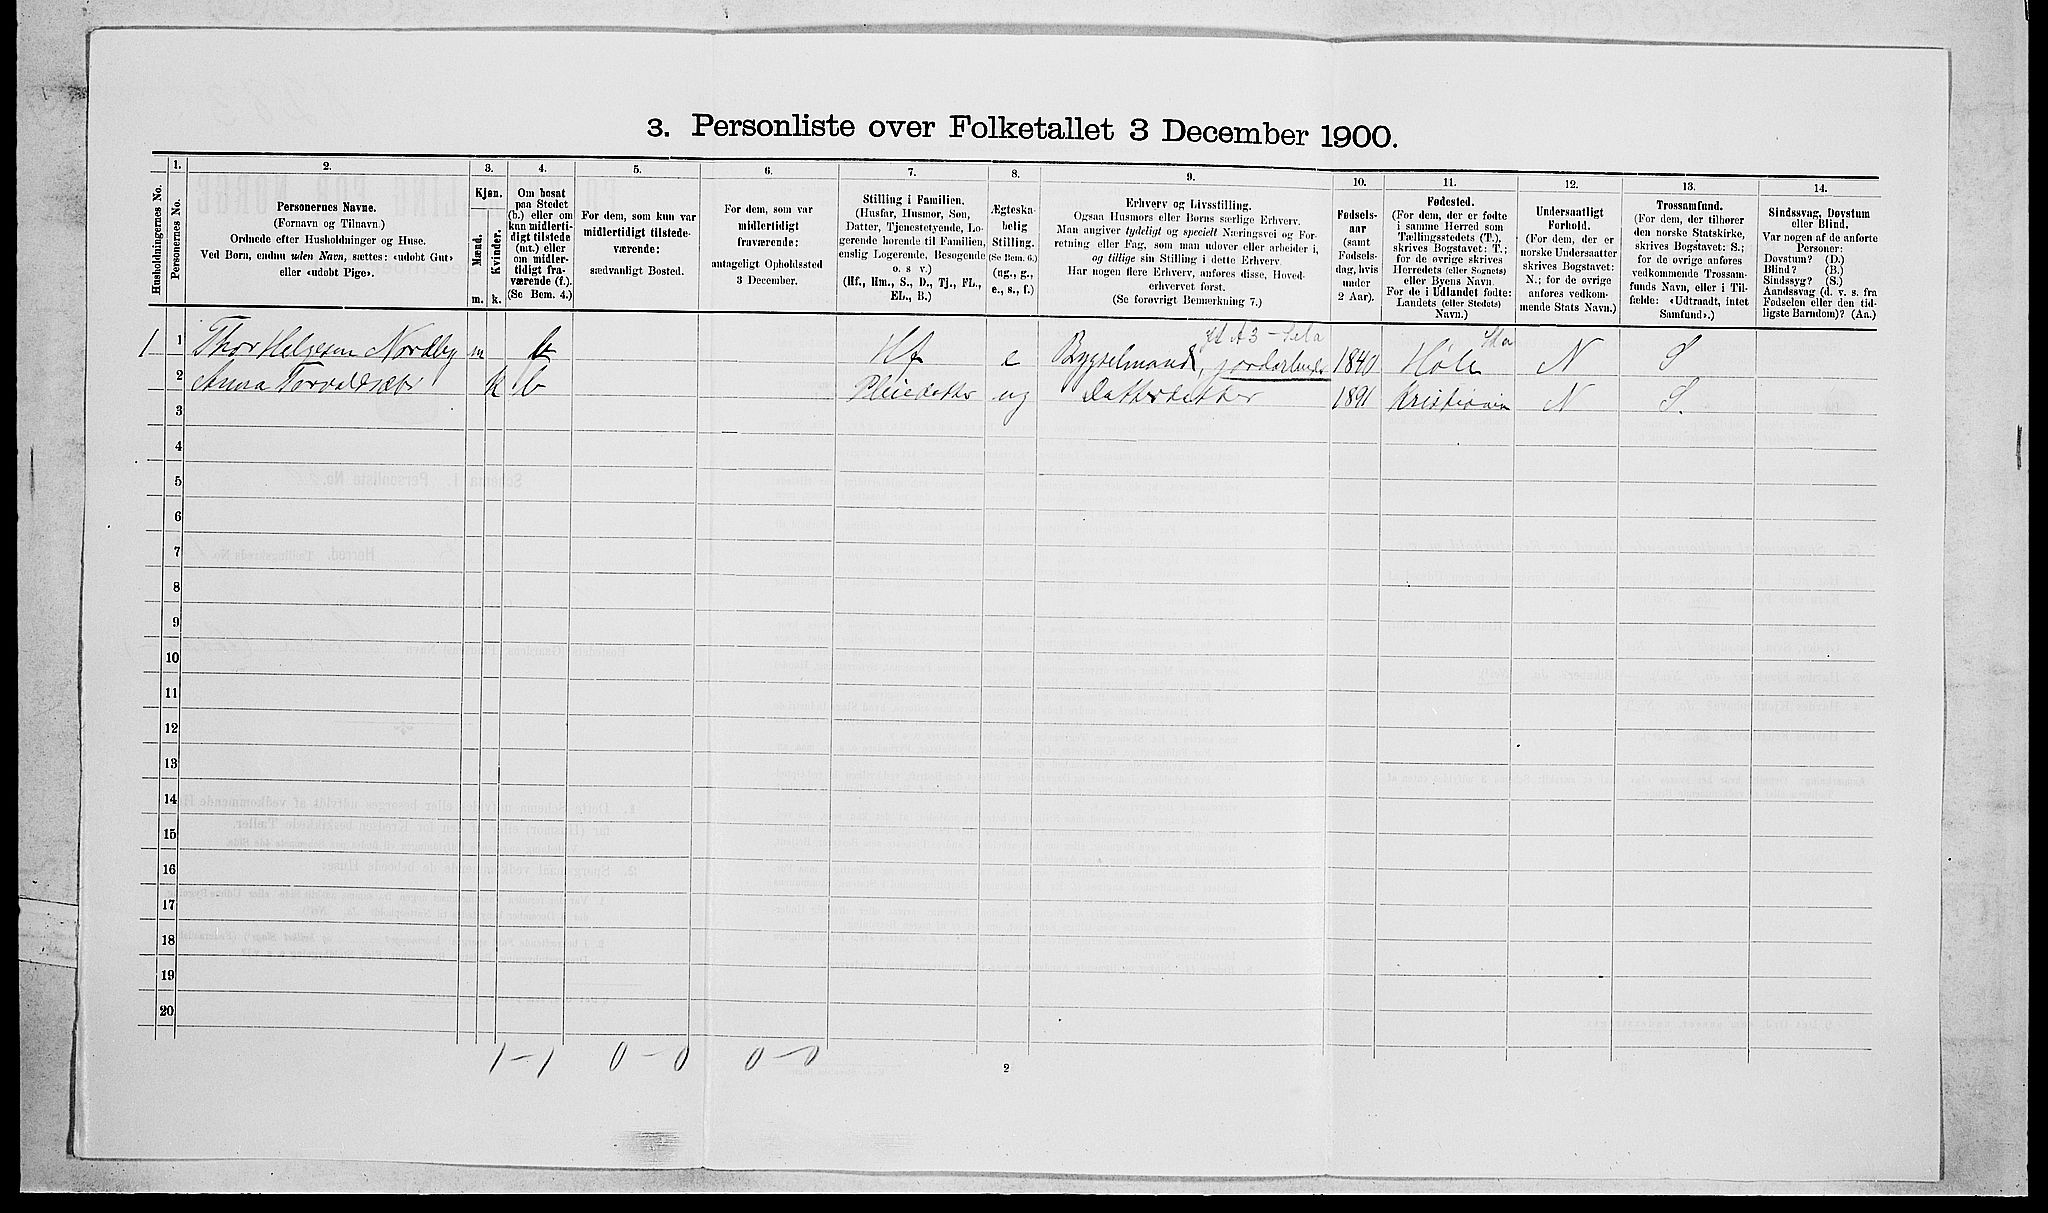 3. Personliste over Folketallet 3 December 1900.
1. 2. 3. 4. 5. 6. 7. 8. 9. 10. 11. 12. 13. 14.
Husholdningernes No.
Personernes No.
Personernes Navne.
(Fornavn og Tilnavn.)
Ordnede efter Husholdninger og Huse.
Ved Børn, endnu uden Navn, sættes: «udøbt Gut»
eller «udøbt Pige».
Kjøn.
Mænd.
Kvinder.
m. k.
Om bosat
paa Stedet
(b.) eller om
kun midlerti-
digt tilstede
(mt.) eller
om midler-
tidigt fra-
værende (f.).
(Se Bem. 4.)
For dem, som kun var
midlertidigt tilstede-
værende:
sædvanligt Bosted.
For dem, som var
midlertidigt
fraværende:
antageligt Opholdssted
3 December.
Stilling i Familien.
(Husfar, Husmor, Søn,
Datter, Tjenestetyende, Lo-
gerende hørende til Familien,
enslig Logerende, Besøgende
o. s v.)
(Hf., Hm., S., D., Tj., FL.,
EL., B.)
Ægteska-
belig
Stilling.
(Se Bem. 6.)
(ug., g.,
e., s., f.)
Erhverv og Livsstilling.
Ogsaa Husmors eller Børns særlige Erhverv.
Man angiver tydeligt og specielt Næringsvei og For-
retning eller Fag, som man udøver eller arbeider i,
og tillige sin Stilling i dette Erhverv.
Har nogen flere Erhverv, anføres disse, Hoved-
erhvervet først.
(Se forøvrigt Bemærkning 7.)
Fødsels-
aar
(samt
Fødsels-
dag, hvis
under
2 Aar).
Fødested.
(For dem, der er fødte
i samme Herred som
Tællingsstedets (T.),
skrives Bogstavet: T.;
for de øvrige skrives
Herredets (eller Sognets)
eller Byens Navn.
For de i Udlandet fødte:
Landets (eller Stedets)
Navn.)
Undersaatligt
Forhold.
(For dem, der er
norske Undersaatter
skrives Bogstavet:
N.; for de øvrige
anføres vedkom-
mende Stats Navn.)
Trossamfund.
(For dem, der tilhører
den norske Statskirke,
skrives Bogstavet: S.;
for de øvrige anføres
vedkommende Trossam-
funds Navn, eller i Til-
fælde: «Udtraadt, intet
Samfund».)
Sindssvag, Døvstum
eller Blind.
Var nogen af de anførte
Personer:
Døvstum? (D.)
Blind? (B.)
Sindssyg? (S.)
Aandssvag (d. v. s. fra
Fødselen eller den tid-
ligste Barndom)? (Aa.)
1 1 Thor Helgesen Nordby m b Hf e Bygselmand, jordarbeider 1840 Høle N S
2 Anna k b Pleiedatter ug Datterdatter 1891 Kristiania N S.
3
4
5
6
7
8
9
10
11
12
13
14
15
16
17
18
19
20
1 - 1 0 - 0 0 - 0
2